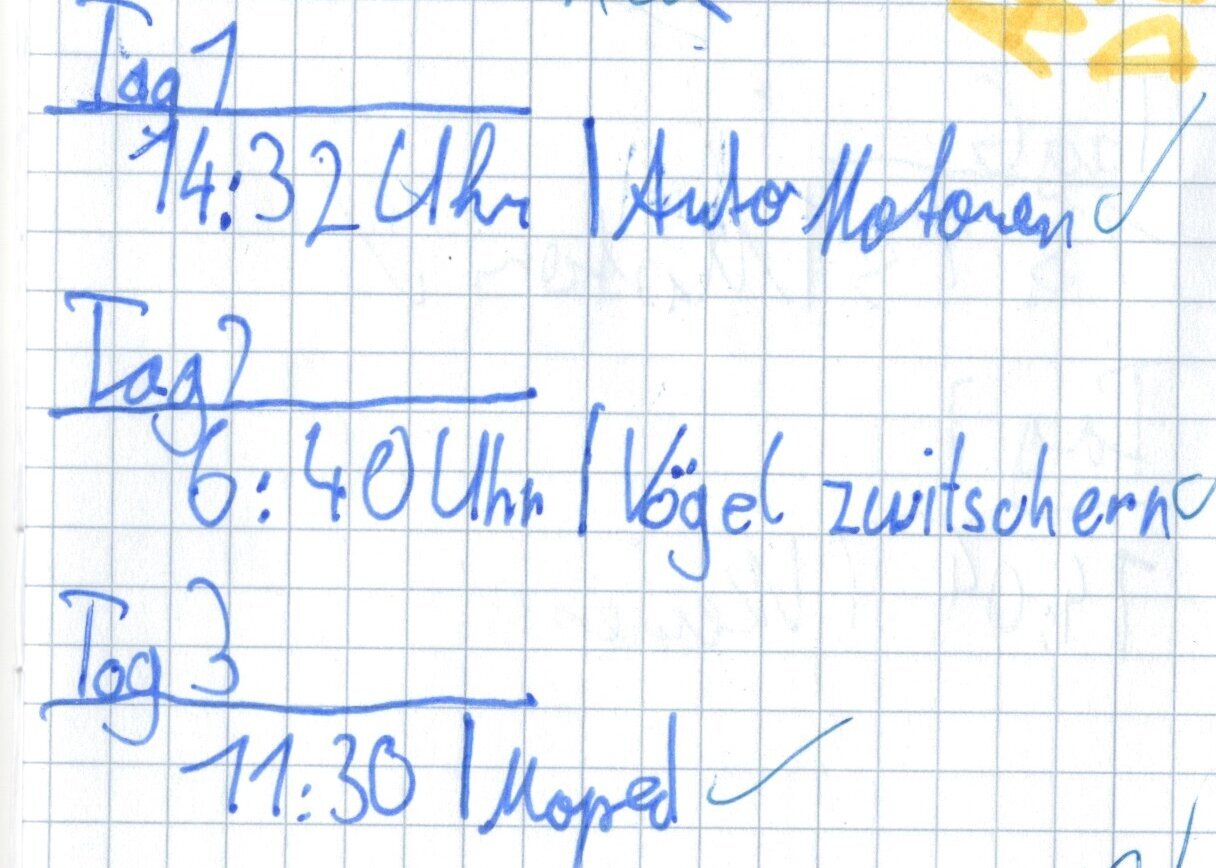 Tag 1
14:32 Uhr | Auto Motoren ✓
Tag 2
6:40 Uhr | Vögel zwitschern ✓
Tag 3
11:30 | Moped ✓